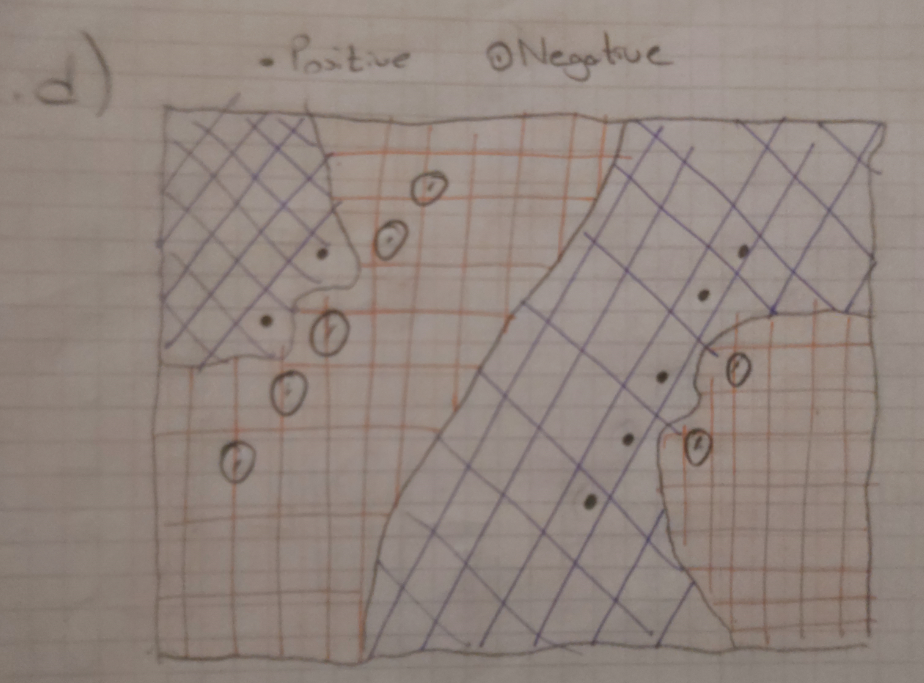 .d) • Positive ⊙ Negative